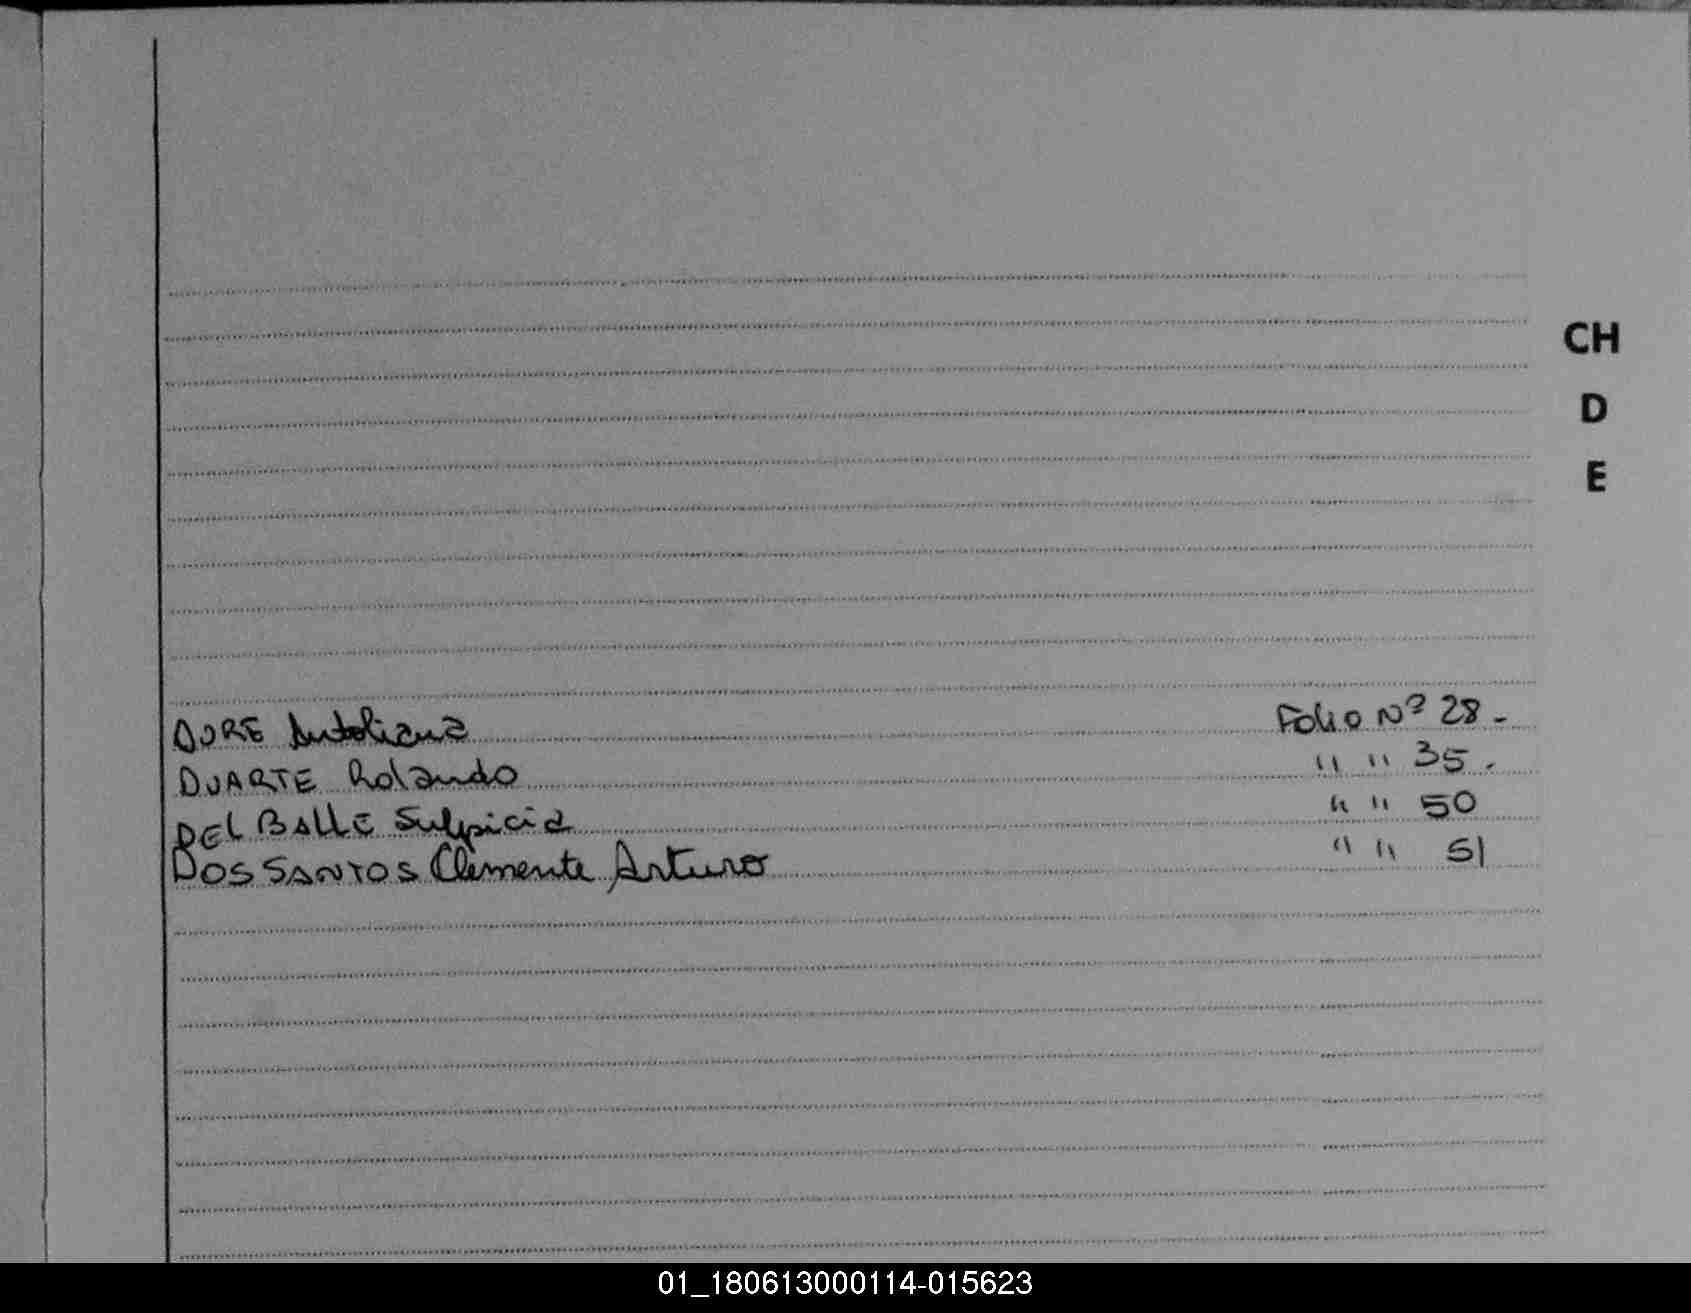 CH
D
E
DURE Antoliana Folio Nº 28.-
DUARTE Rolando " " 35.
DEL BALLE Sulpicia " " 50
DOS SANTOS Clemente Arturo " " 51
01_180613000114-015623